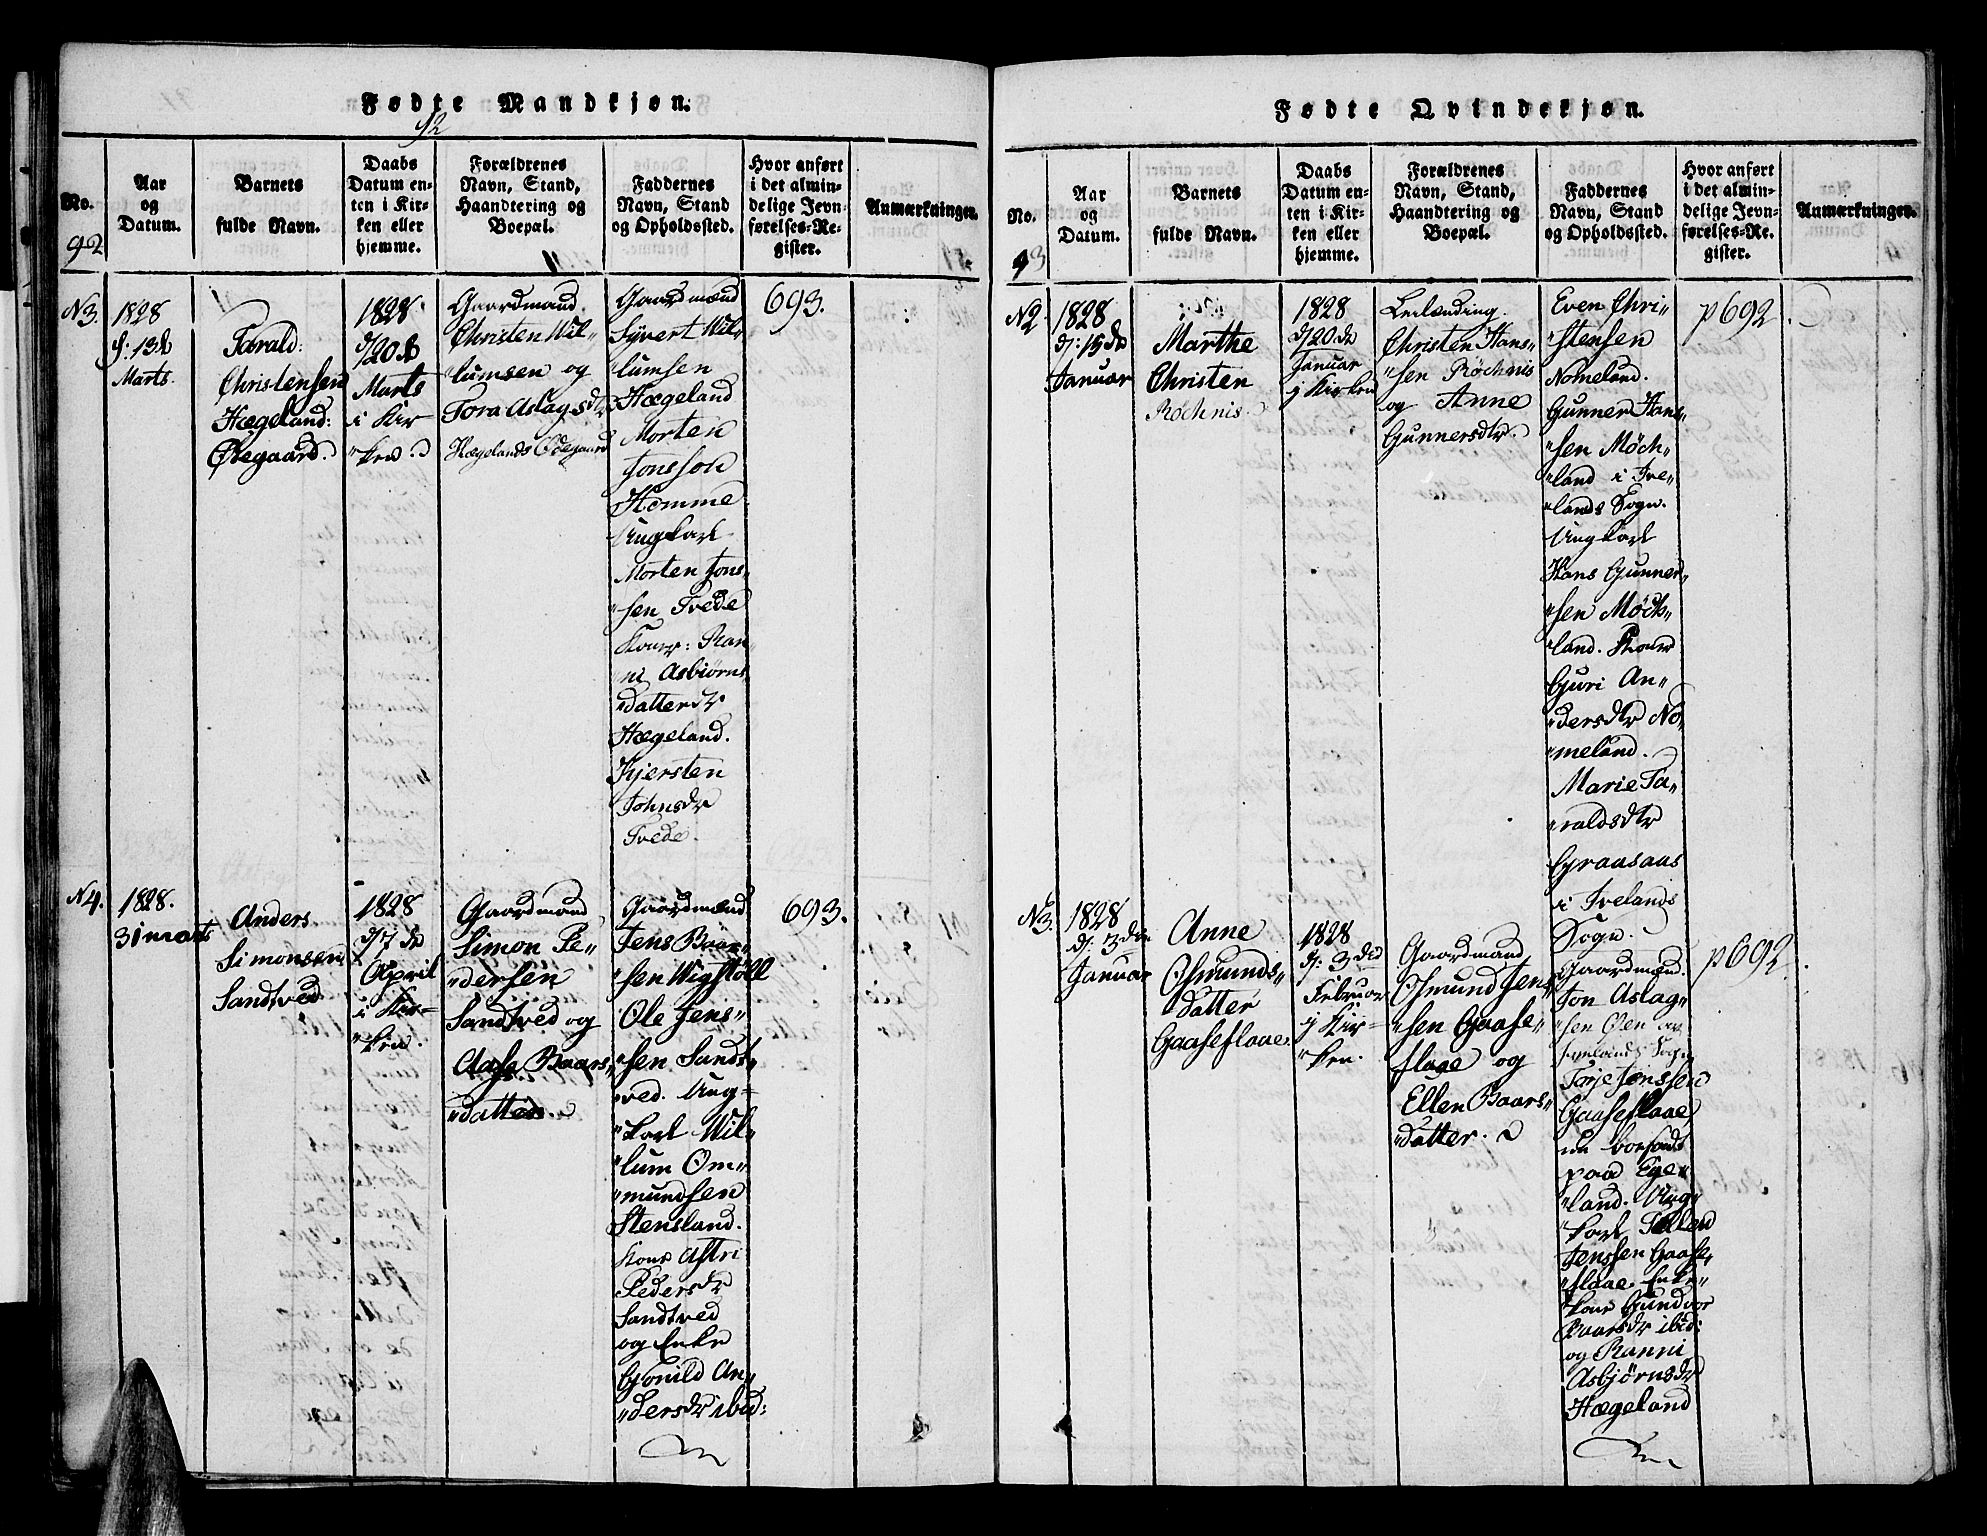 Fødte Mandkjøn.
92
No.
Aar
og
Datum.
Barnets
fulde Navn.
Daabs
Datum en-
ten i Kir-
ken eller
hjemme.
Forældrenes
Navn, Stand,
Haandtering og
Boepæl.
Faddernes
Navn, Stand
og Opholdssted.
Hvor anført
i det almin-
delige Jevn-
førelses-Re-
gister.
Anmærkninger.
92
N3.
1828
d: 13de
Marts.
Tarald
Christensen
Hægeland:
Ødegaard.
1828
d/20de
Marts
i Kir-
"ken.
Gaardmand
Christen Wil-
lumsen og
Tora Aslagsdtr
Hægelands Ødegaard
Gaardmænd
Syvert Wil-
lumsen
Hægeland
Morten
Jonsson
Homme
Ungkarl
Morten Jons-
"sen Tvede
Koner: Ran-
"ni Asbiørns-
"datter
Hægeland.
Kjersten
Johnsdr
Tvede.
693.
N4.
1828.
31 marts
Anders
Simonsen
Sandtved
1828
d/7de
April
i Kir-
"ken.
Gaardmand
Simon Pe-
"dersen
Sandtved og
Aase Baars-
"datter.
Gaardmænd
Jens Baar-
"sen Wigstøll
Ole Jens-
"sen Sandt-
"ved. Ung-
"karl Wil-
"lum Om-
"mundsen
Stensland.
Kone Astri
Pedersdr
Sandtved
og Enke
Gonild An-
"dersdr ibid:
693.
Fødte Qvindekjøn.
No.
Aar
og
Datum.
Barnets
fulde Navn.
Daabs
Datum en-
ten i Kir-
ken eller
hjemme.
Forældrenes
Navn, Stand,
Haandtering og
Boepæl.
Faddernes
Navn, Stand
og Opholdssted.
Hvor anført
i det almin-
delige Jevn-
førelses-Re-
gister.
Anmærkninger.
93
N2.
1828
d: 15de
Januar
Marthe
Christen
Røchnis.
1828
d/20de
Januar
i Kirken
Leilænding.
Christen Hans-
"sen Røchnis
og Anne
Gunnersdtr.
Even Chri-
"stensen
Nomeland.
Gunner Hans-
"sen Møch-
"land i Ive-
"lands Sogn.
Ungkarl
Hans Gunner-
"sen Møch-
"land. Koner
Guri An-
"dersdtr No-
"meland.
Marie Ta-
"raldsdtr
Graasaas
i Ivelands
Sogn.
p692.
N3.
1828
d: 3die
Januar
Anne
Osmunds-
datter
Gaaseflaae.
1828
d: 3die
Februar
i Kir-
"ken.
Gaardmand
Osmund Jens-
"sen Gaase-
flaae og
Ellen Baars-
"datter.
Gaardmænd.
Jon Aslag-
"sen Øen
Terje Jenssen
Gaaseflaae
paa Ege-
"land. Ung-
"karl Tellev
Jenssen Gaase-
"flaae. Enke-
"kone Gundvor
Baarsdr ibid:
og Ranni
Asbjørnsdr
Hægeland
p692.